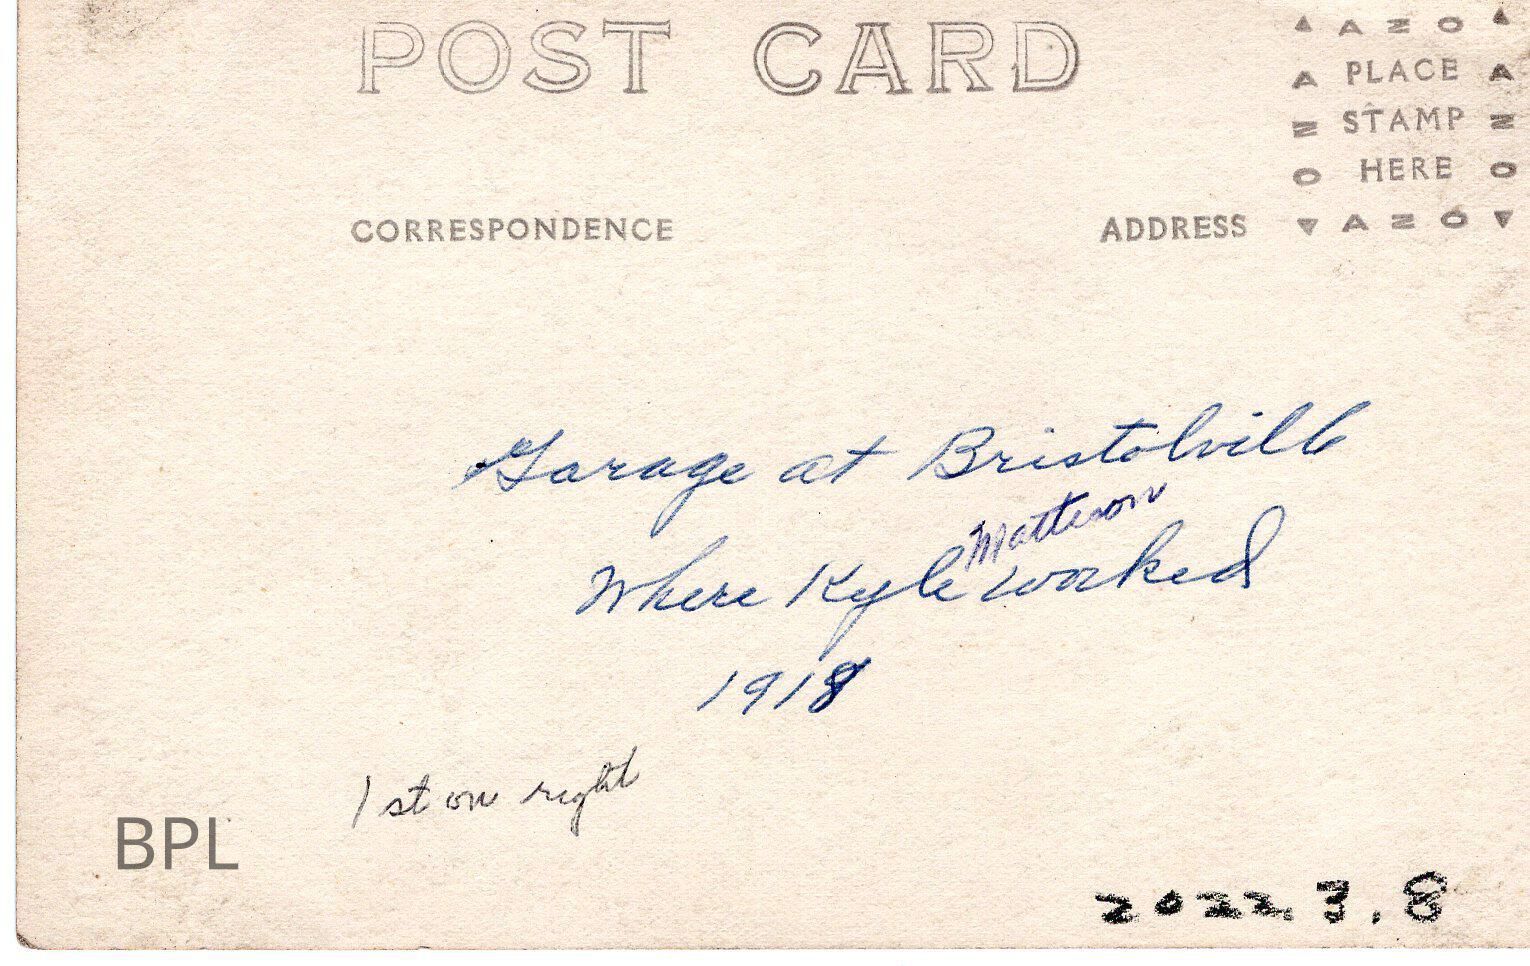 POST CARD
▲ AZO ▲
AZO PLACE AZO
STAMP
HERE
▼ AZO ▼
CORRESPONDENCE ADDRESS
Garage at Bristolville
Matteson
Where Kyle worked
1918
1st on right
BPL
2022.3.8